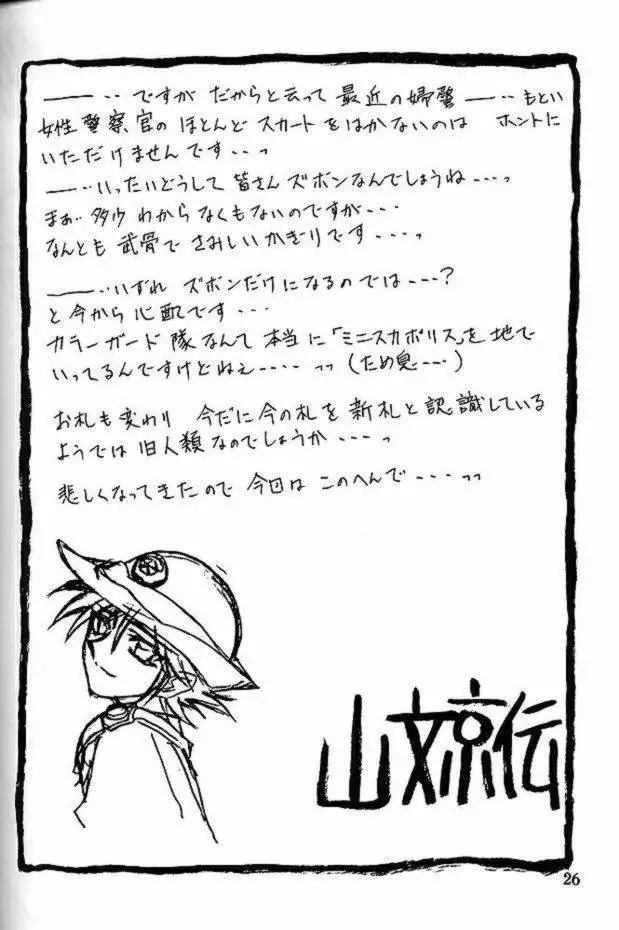 ――‥ ですが だからと云って 最近の婦警 ――‥もとい
女性警察官の ほとんど スカートをはかないのは ホントに
いただけませんです‥‥っ
――‥いったいどうして 皆さん ズボンなんでしょうね‥‥っ
まぁ‥多少わからなくもないのですが‥‥
なんとも 武骨で さみしいかぎりです‥‥っ
――‥いずれ ズボンだけになるのでは‥‥?
と今から心配です‥‥
カラーガード隊なんて本当に「ミニスカポリス」を地で
いってるんですけどねぇ‥‥‥っっ(ため息‥‥)
お札も変わり 今だに今の札を新札と認識している
ようでは旧人類なのでしょうか‥‥っ
悲しくなってきたので 今回は このへんで‥‥っっ
山文京伝
26